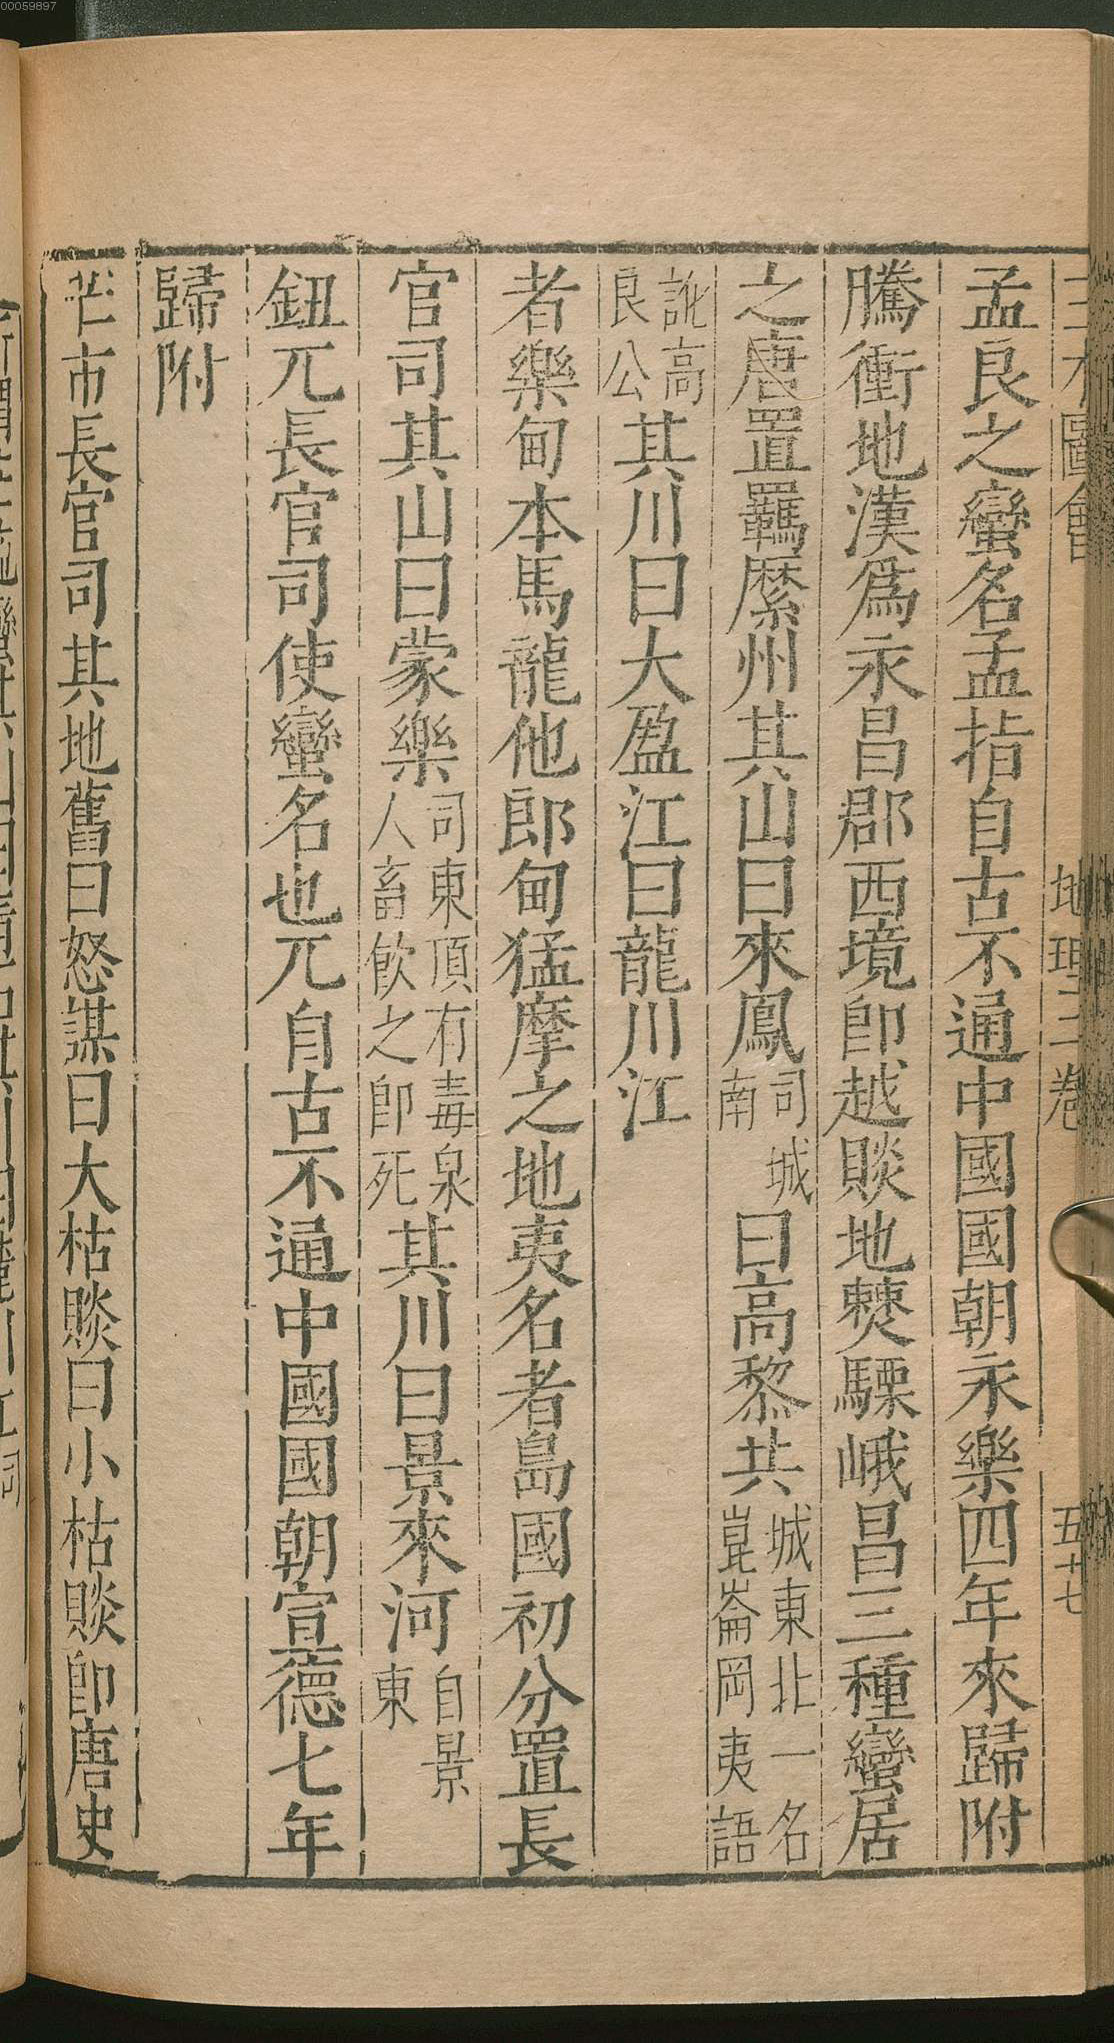 00059897
三才圖會 地理三卷 五十七
孟良之蠻名孟指自古不通中國國朝永樂四年來歸附
騰衝地漢爲永昌郡西境卽越賧地僰驃峨昌三種蠻居
之唐置羈縻州其山曰來鳳司城南曰高黎共城東北一名崑崙岡夷語
訛高良公其川曰大盈江曰龍川江
者樂甸本馬龍他郎甸猛摩之地夷名者島國初分置長
官司其山曰蒙樂司東頂有毒泉人畜飲之卽死其川曰景來河自景東
鈕兀長官司使蠻名也兀自古不通中國國朝宣德七年
歸附
芒市長官司其地舊曰怒謀曰大枯賧曰小枯賧卽唐史